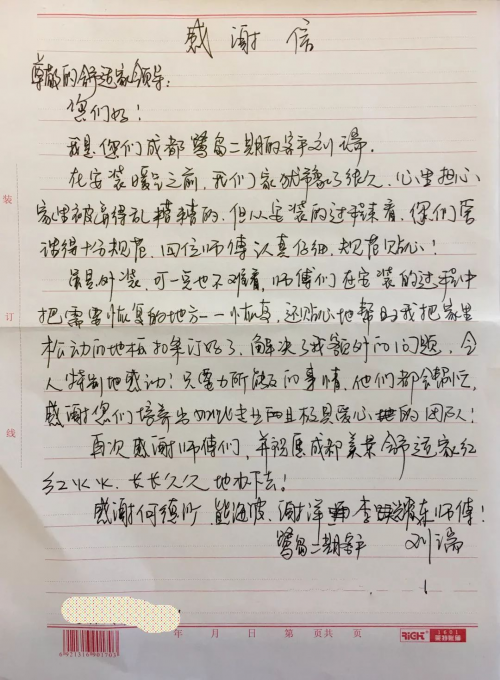 感谢信
尊敬的舒适家领导:
您们好!
我是您们成都鹭岛二期的客户刘瑞.
在安装暖气之前,我们家犹豫了很久,心里担心
家里被弄得乱糟糟的.但从安装的过程来看,您们显
得十分规范,四位师傅认真仔细,规范贴心!
虽是外装,可一点也不难看,师傅们在安装的过程中
把需要恢复的地方一一恢复,还贴心地帮助我把家里
松动的地板扣条订好了,解决了我额外的问题,令
人特别地感动!只要力所能及的事情,他们都会帮忙,
感谢您们培养出如此专业而且极具爱心的团队!
再次感谢师傅们,并祝愿成都美景舒适家红
红火火、长长久久地办下去!
感谢何德 熊海波、谢洋 李 东师傅!
鹭岛二期客户 刘瑞
装
订
线
年 月 日 第 页共 页
RiCH
6921316901703